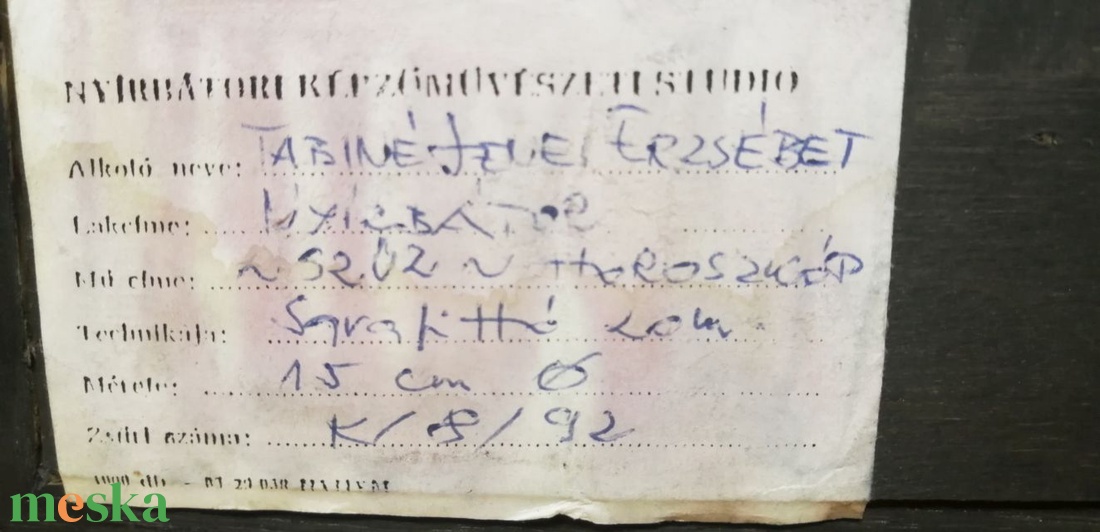 NYÍRBÁTORI KÉPZŐMŰVÉSZETI STÚDIÓ
Alkotó neve: TABINÉ JENEI ERZSÉBET
Lakcíme: NYÍRBÁTOR
Mű címe: ~ SZŰZ ~ HOROSZKÓP
Technikája: Sgrafittó
Mérete: 15 cm Ø
Zsűri száma: K/8/92
meska